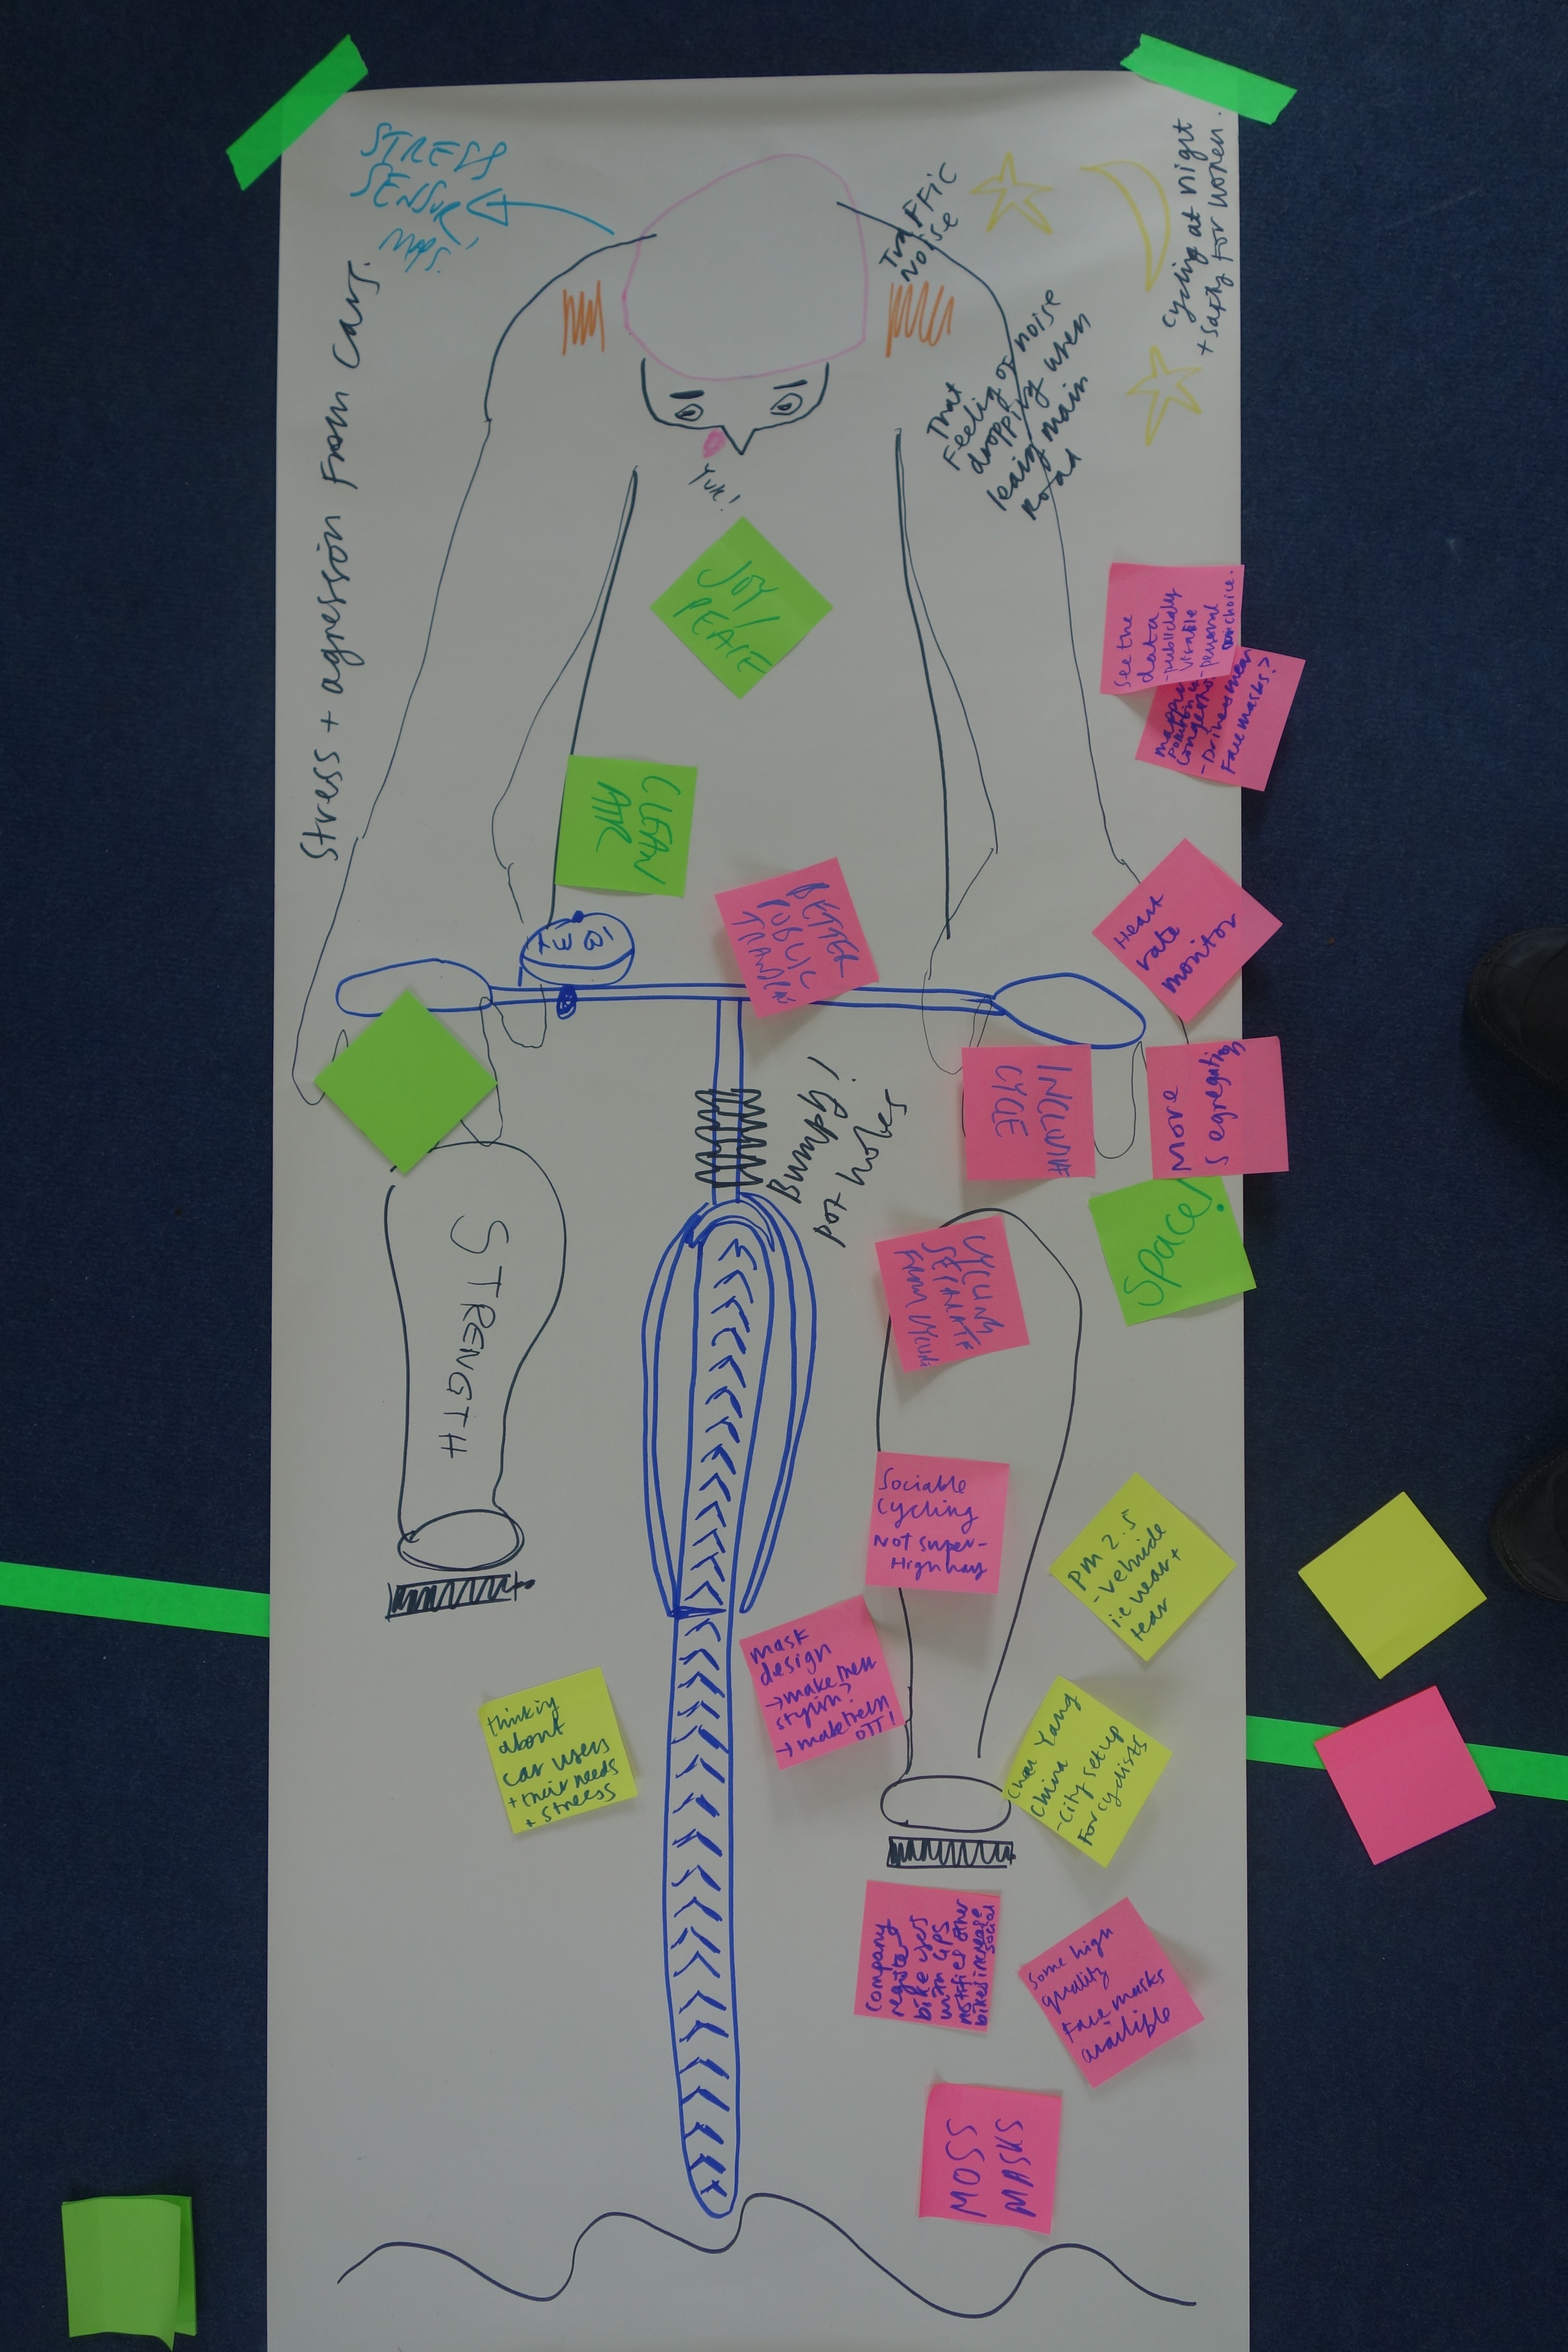 STRESS
SENSUR
MAPS!
Stress + agression from cars.
Traffic
Noise
cycling at night
+ safty for women.
That
Feeling of noise
dropping when
leaing main
road
Yuk!
JOY/
PEACE
CLEAN
AIR
See the
data
-publically
visable
-personal
choice.
congestion
-Drivers wear
Face masks?
BETTER
PUBLIC
Heart
rate
monitor
INCLUSIVE
CYCLE
More
segregation
Space!
Bumpy!
pot holes
STRENGTH
CYCLING
SEPARATE
FROM
Sociable
cycling
Not super-
Highway
PM 2.5
-vehicle
i.e wear +
tear
mask
design
→make them
stylin?
→make them
OTT!
thinking
about
car users
+ their needs
+ stress
Yang
China
-City setup
For cyclists
company
register
bike users
with GPS
notifies other
bikes increase
social
Some high
quality
Face masks
availible
MOSS
MASKS